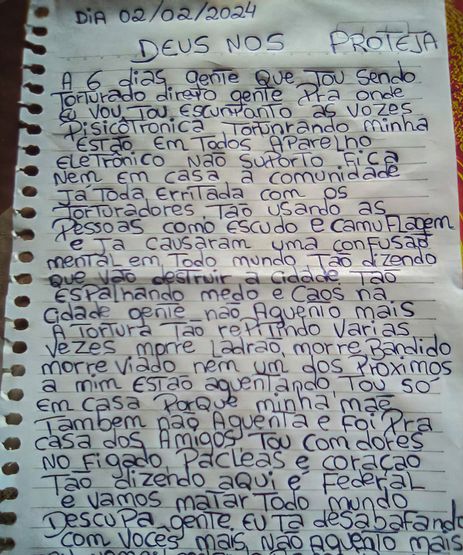 DIA 02/02/2024
DEUS NOS PROTEJA
A 6 dias gente que tou sendo
Torturado direto gente pra onde
eu vou tou escunponto as vozes
Pisicotronica torunrando minha
estão em todos aparelho
eletrônico não suporto fica
nem em casa a comunidade
ja toda erritada com os
torturadores tao usando as
pessoas como escudo e camuflagem
e ja causaram uma confusao
mental em todo mundo tao dizendo
que vao destruir a cidade tao
espalhando medo e caos na
cidade gente não aguento mais
a tortura tao reptindo varias
vezes morre ladrao, morre bandido
morre viado nem um dos proximos
a mim estao aguentando tou só
em casa porque minha mãe
também não aguenta e foi pra
casa dos amigos tou com dores
no figado, pacleas e coracao
tao dizendo aqui e federal
e vamos matar todo mundo
descupa gente eu ta desabafando
com voces mais não aguento mais